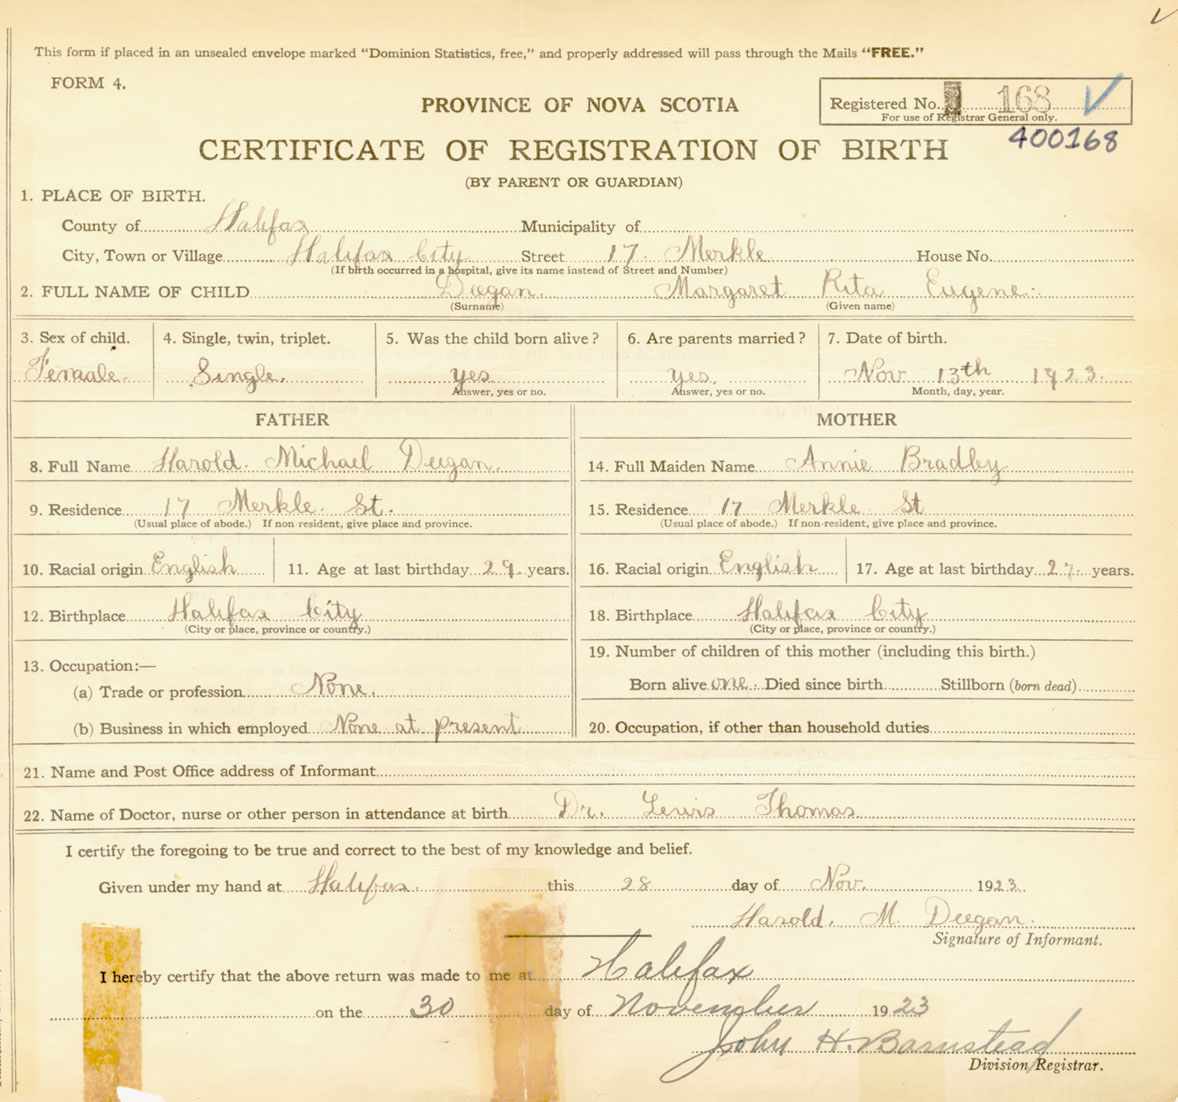 This form if placed in an unsealed envelope marked "Dominion Statistics, free," and properly addressed will pass through the Mails "FREE."
FORM 4.
PROVINCE OF NOVA SCOTIA
Registered No. 168
For use of Registrar General only.
400168
CERTIFICATE OF REGISTRATION OF BIRTH
(BY PARENT OR GUARDIAN)
1. PLACE OF BIRTH.
County of Halifax Municipality of
City, Town or Village Halifax City Street 17 Merkle House No.
(If birth occurred in a hospital, give its name instead of Street and Number)
2. FULL NAME OF CHILD Deegan. Margaret Rita Eugene.
(Surname) (Given name)
3. Sex of child. 4. Single, twin, triplet. 5. Was the child born alive? 6. Are parents married? 7. Date of birth.
Female. Single. yes yes. Nov 13th 1923.
Answer, yes or no. Answer, yes or no. Month, day, year.
FATHER MOTHER
8. Full Name Harold. Michael Deegan. 14. Full Maiden Name Annie Bradley
9. Residence 17 Merkle St. 15. Residence 17 Merkle St
(Usual place of abode.) If non-resident, give place and province. (Usual place of abode.) If non-resident, give place and province.
10. Racial origin English 11. Age at last birthday 29 years. 16. Racial origin English 17. Age at last birthday 27 years.
12. Birthplace Halifax City 18. Birthplace Halifax City
(City or place, province or country.) (City or place, province or country.)
13. Occupation:— 19. Number of children of this mother (including this birth.)
(a) Trade or profession None. Born alive one. Died since birth Stillborn (born dead)
(b) Business in which employed None at present 20. Occupation, if other than household duties
21. Name and Post Office address of Informant
22. Name of Doctor, nurse or other person in attendance at birth Dr. Lewis Thomas
I certify the foregoing to be true and correct to the best of my knowledge and belief.
Given under my hand at Halifax. this 28 day of Nov. 1923
Harold. M. Deegan.
Signature of Informant.
I hereby certify that the above return was made to me at Halifax
on the 30 day of November 1923
John H. Barnstead
Division Registrar.